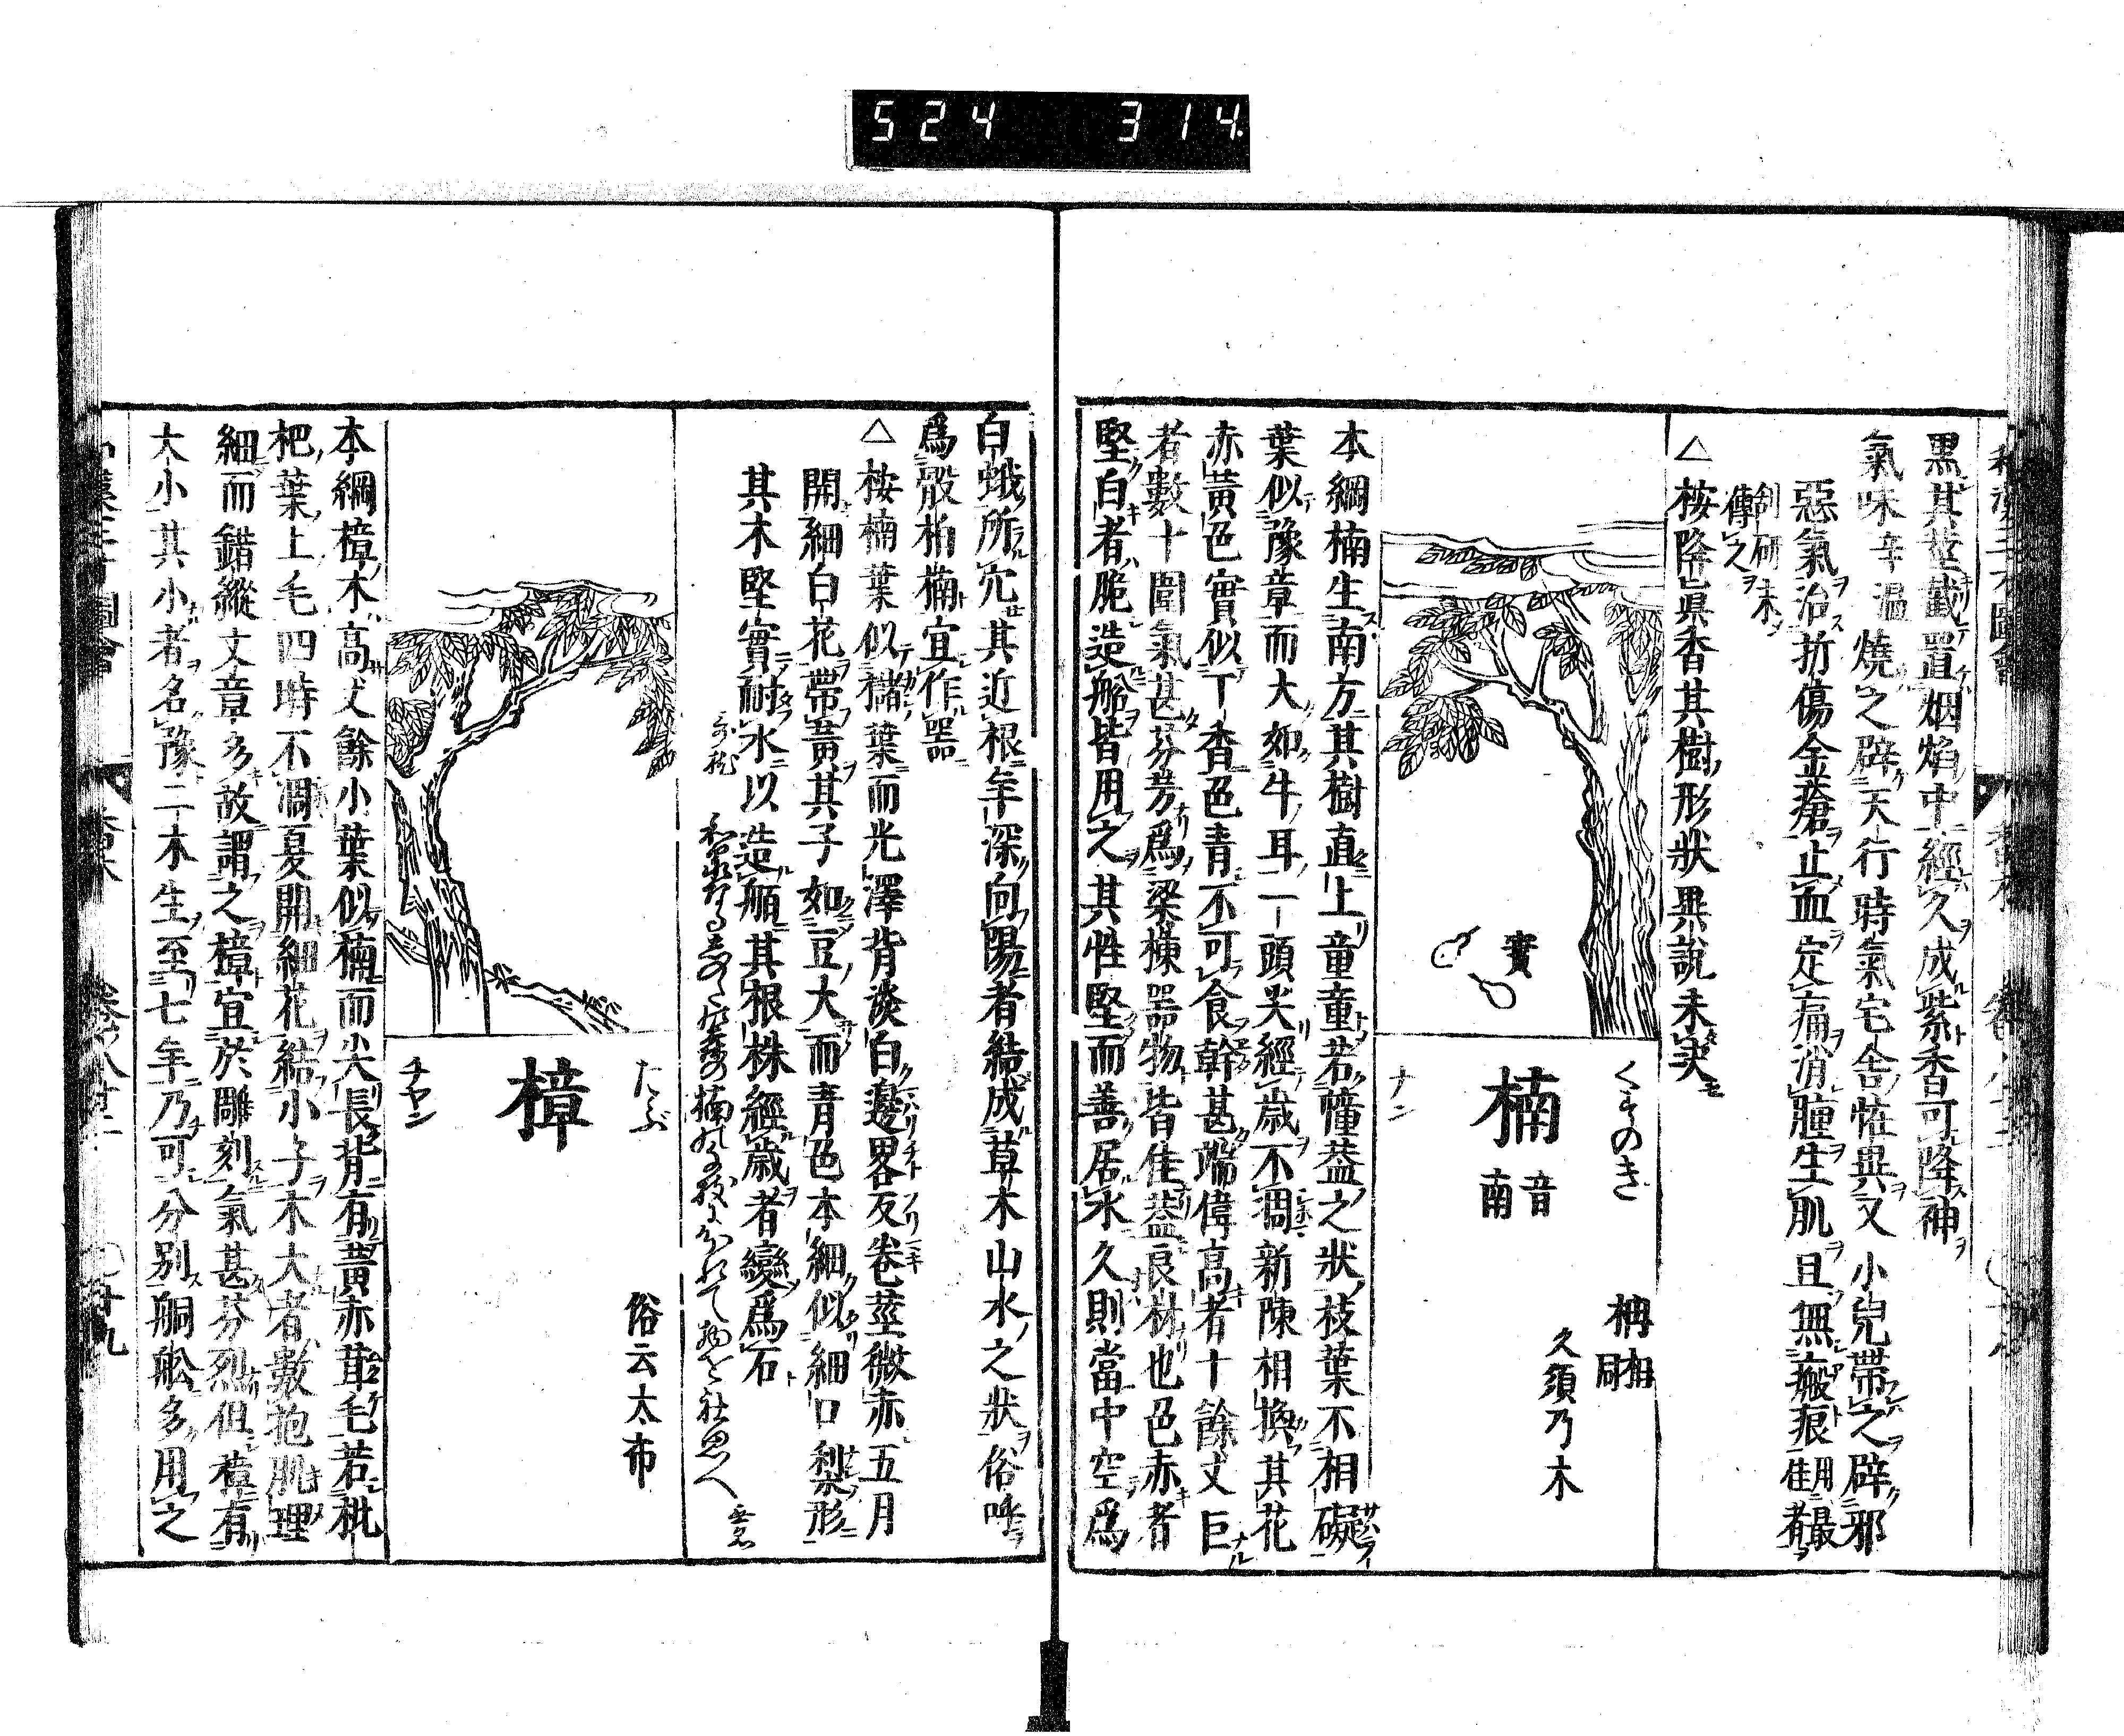 524 314
黒其莖截置烟焰中經久成紫香可降神
氣味辛溫燒之辟天行時氣宅舍恠異又小兒帶之辟邪
惡氣治折傷金瘡止血定痛消腫生肌且無瘢痕用最佳者
刮研末傳之
△按降眞香其樹形狀異説未决
實
くすのき
楠
音南
ナン
枏 柟同
久須乃木
本綱楠生南方其樹直上童童若幢葢之狀枝葉不相礙
葉似豫章而大如牛耳一頭尖經歳不凋新陳相換其花
赤黃色實似丁香色青不可食幹甚端偉高者十餘丈巨
者數十圍氣甚芬芳爲梁棟噐物皆佳葢良材也色赤者
堅白者脆造船皆用之其性堅而善居水久則當中空爲
白蟻所穴其近根年深向陽者結成草木山水之狀俗呼
爲骰栢楠宜作噐
△按楠葉似櫧葉而光澤背淡白邊畧反卷莖微赤五月
開細白花帶黃其子如豆大而青色本細似細口梨形
其木堅實耐水以造舶其根株經歳者變爲石
和泉なる志のたの森の楠の千枝にわかれて物をこそ思へ
たぶ
樟
チヤン
俗云太布
本綱樟木高丈餘小葉似楠而尖長背有黃赤茸毛若枇
杷葉上毛四時不凋夏開細花結小子木大者數抱肌理
細而錯縱文章多故謂之樟宜於雕刻氣甚芬烈但樟有
大小其小者名豫二木生至七年乃可分別舸舩多用之